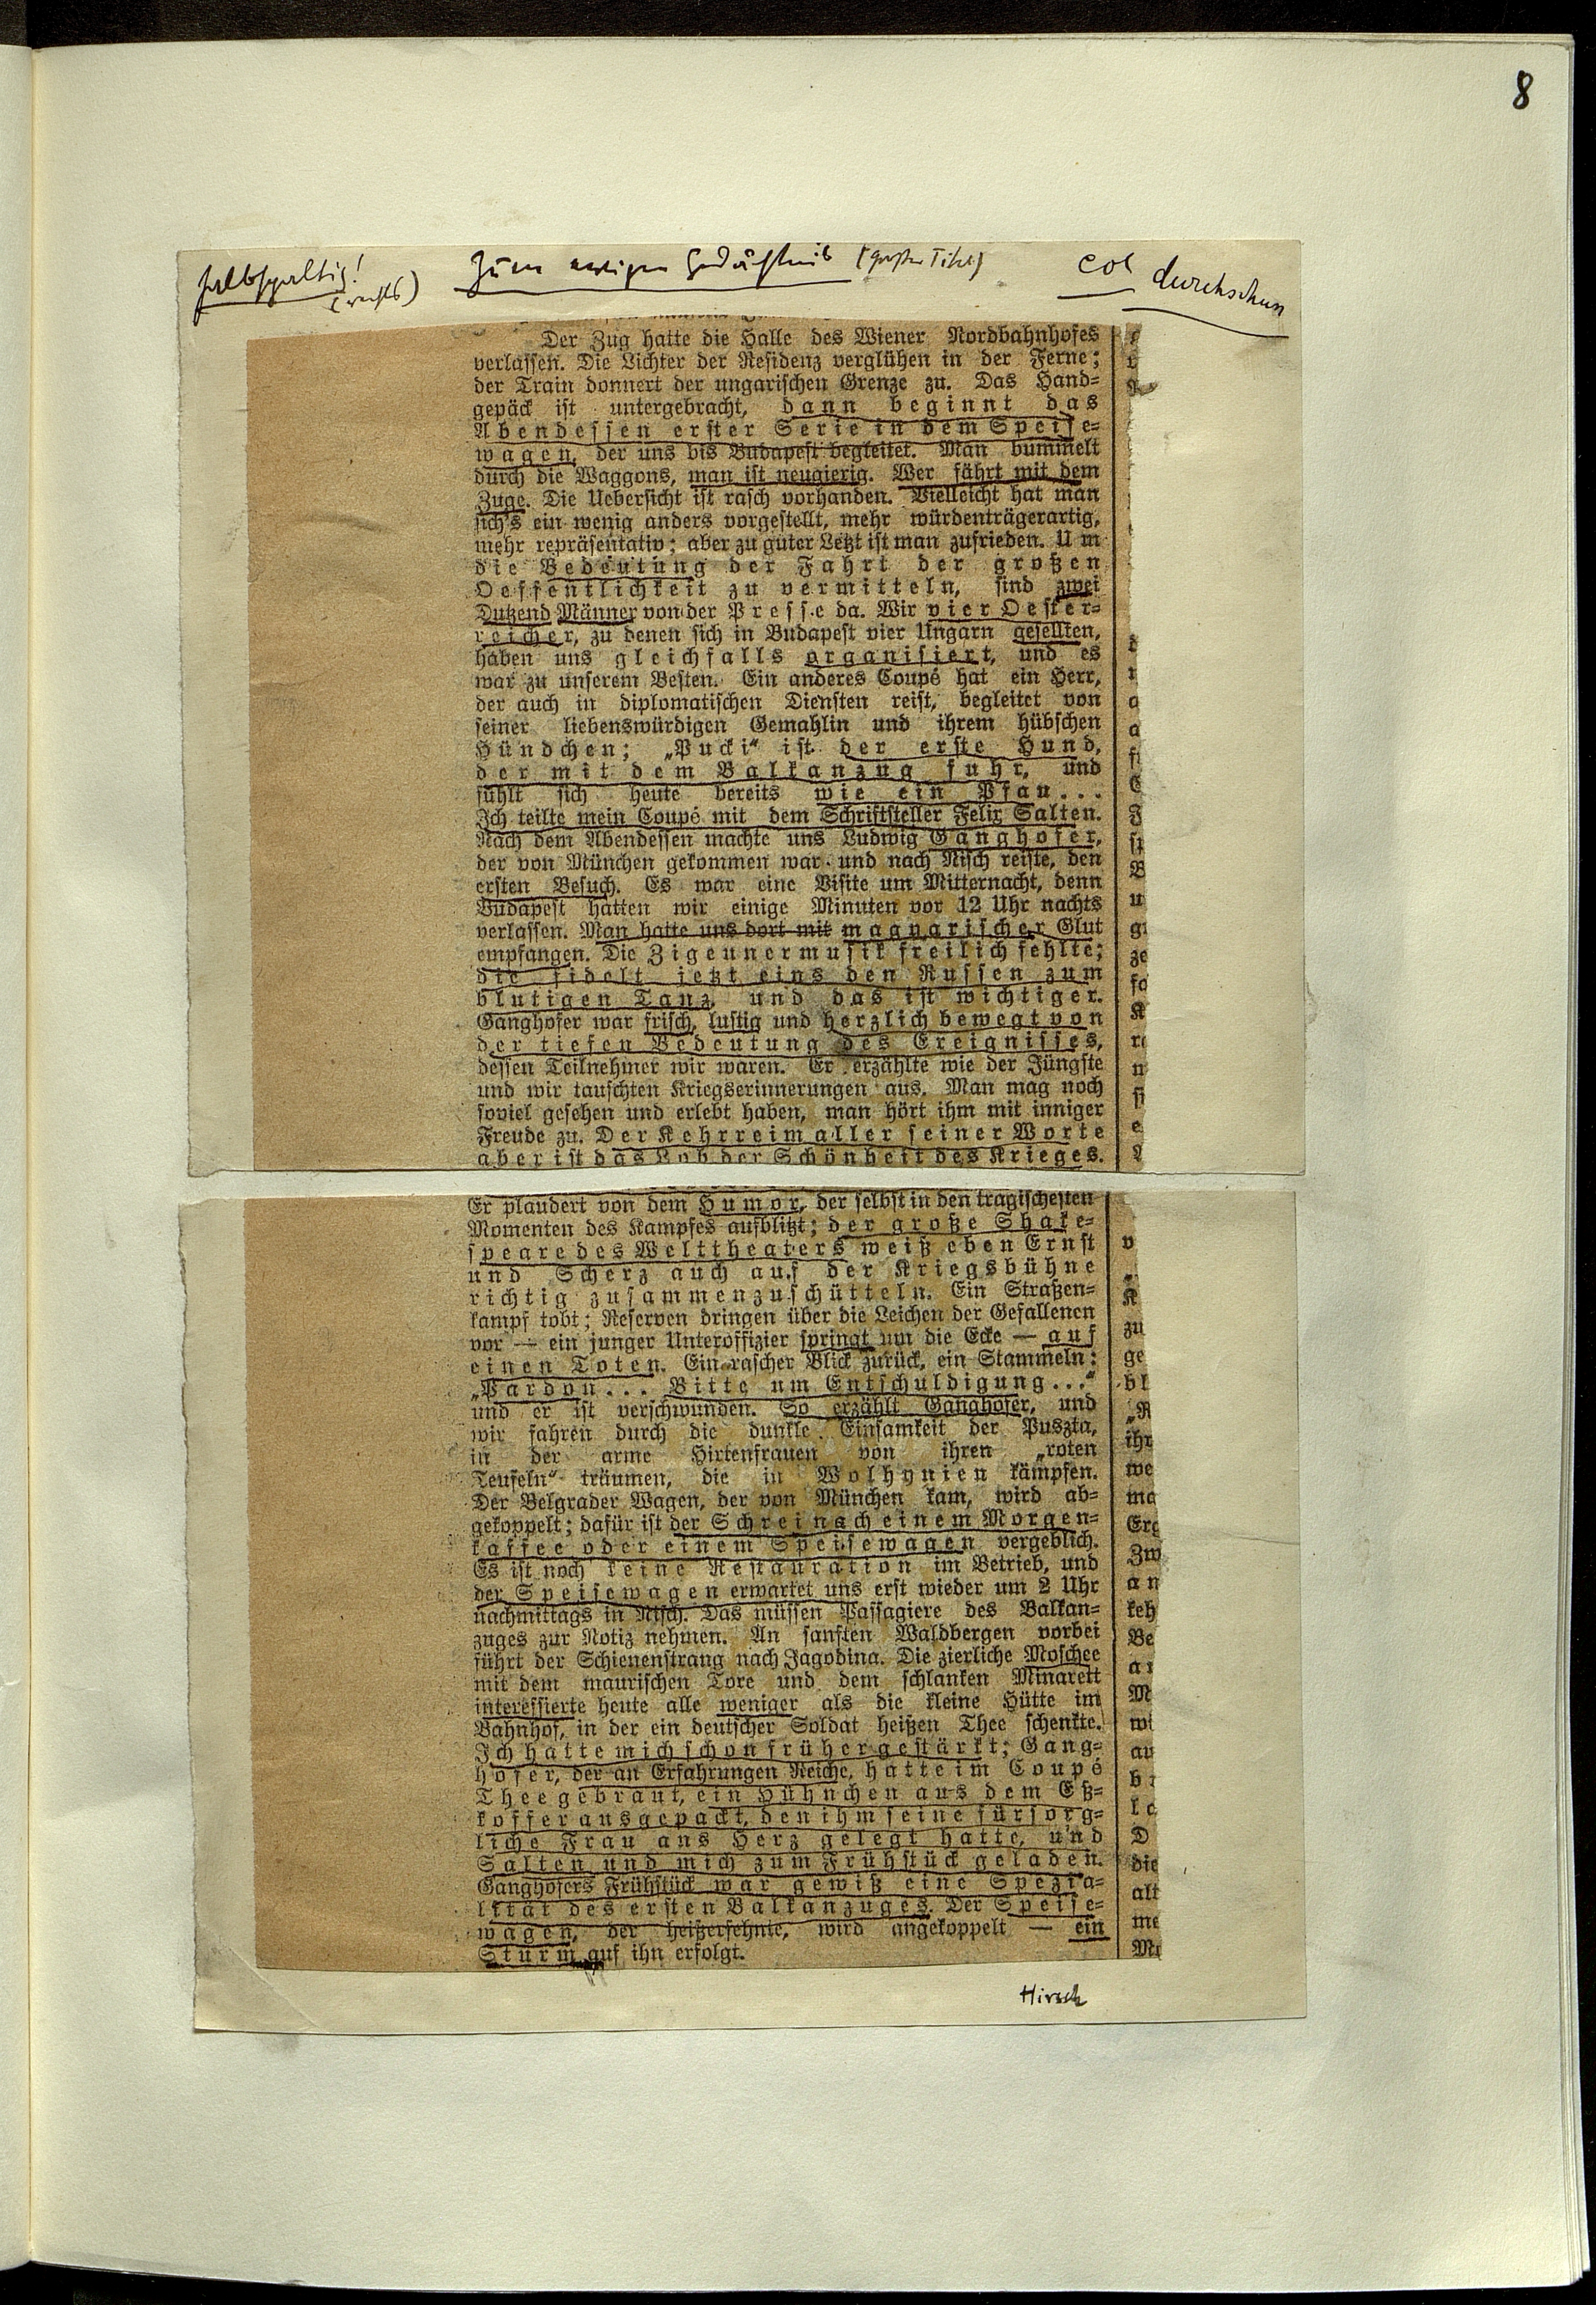 8
halbspaltig!
(rechts)
Zum ewigen Gedächtnis (großer Titel)
durchschun
Der Zug hatte die Halle des Wiener Nordbahnhofes
verlassen. Die Lichter der Residenz verglühen in der Ferne;
der Train donnert der ungarischen Grenze zu. Das Hand-
gepäck ist untergebracht, dann beginnt das
Abendessen erster Serie in dem Speise-
wagen, der uns bis Budapest begleitet. Man bummelt
durch die Waggons, man ist neugierig. Wer fährt mit dem
Zuge. Die Uebersicht ist rasch vorhanden. Vielleicht hat man
sich's ein wenig anders vorgestellt, mehr würdenträgerartig,
mehr repräsentativ; aber zu guter Letzt ist man zufrieden. Um
die Bedeutung der Fahrt der großen
Oeffentlichkeit zu vermitteln, sind zwei
Dutzend Männer von der Presse da. Wir vier Oester-
reicher, zu denen sich in Budapest vier Ungarn gesellten,
haben uns gleichfalls organisiert, und es
war zu unserem Besten. Ein anderes Coupé hat ein Herr,
der auch in diplomatischen Diensten reist, begleitet von
seiner liebenswürdigen Gemahlin und ihrem hübschen
Hündchen; „Pucki“ ist der erste Hund,
der mit dem Balkanzug fuhr, und
fühlt sich heute bereits wie ein Pfau...
Ich teilte mein Coupé mit dem Schriftsteller Felix Salten.
Nach dem Abendessen machte uns Ludwig Ganghofer,
der von München gekommen war und nach Nisch reiste, den
ersten Besuch. Es war eine Visite um Mitternacht, denn
Budapest hatten wir einige Minuten vor 12 Uhr nachts
verlassen. Man hatte uns dort mit magyarischer Glut
empfangen. Die Zigeunermusik freilich fehlte;
die fidelt jetzt eins den Russen zum
blutigen Tanz, und das ist wichtiger.
Ganghofer war frisch, lustig und herzlich bewegt von
der tiefen Bedeutung des Ereignisses,
dessen Teilnehmer wir waren. Er erzählte wie der Jüngste
und wir tauschten Kriegserinnerungen aus. Man mag noch
soviel gesehen und erlebt haben, man hört ihm mit inniger
Freude zu. Der Kehrreim aller seiner Worte
aber ist das Lob der Schönheit des Krieges.
Er plaudert von dem Humor, der selbst in den tragischesten
Momenten des Kampfes aufblitzt; der große Shake-
speare des Welttheaters weiß eben Ernst
und Scherz auch auf der Kriegsbühne
richtig zusammenzuschütteln. Ein Straßen-
kampf tobt; Reserven dringen über die Leichen der Gefallenen
vor — ein junger Unteroffizier springt um die Ecke — auf
einen Toten. Ein rascher Blick zurück, ein Stammeln:
„Pardon... Bitte um Entschuldigung...“
und er ist verschwunden. So erzählt Ganghofer, und
wir fahren durch die dunkle Einsamkeit der Puszta,
in der arme Hirtenfrauen von ihren „roten
Teufeln“ träumen, die in Wolhynien kämpfen.
Der Belgrader Wagen, der von München kam, wird ab-
gekoppelt; dafür ist der Schrei nach einem Morgen-
kaffee oder einem Speisewagen vergeblich.
Es ist noch keine Restauration im Betrieb, und
der Speisewagen erwartet uns erst wieder um 2 Uhr
nachmittags in Nisch. Das müssen Passagiere des Balkan-
zuges zur Notiz nehmen. An sanften Waldbergen vorbei
führt der Schienenstrang nach Jagodina. Die zierliche Moschee
mit dem maurischen Tore und dem schlanken Minarett
interessierte heute alle weniger als die kleine Hütte im
Bahnhof, in der ein deutscher Soldat heißen Thee schenkte.
Ich hatte mich schon früher gestärkt; Gang-
hofer, der an Erfahrungen Reiche, hatte im Coupé
Thee gebraut, ein Hühnchen aus dem Eß-
koffer ausgepackt, den ihm seine fürsorg-
liche Frau ans Herz gelegt hatte, und
Salten und mich zum Frühstück geladen.
Ganghofers Frühstück war gewiß eine Spezia-
lität des ersten Balkanzuges. Der Speise-
wagen, der heißersehnte, wird angekoppelt — ein
Sturm auf ihn erfolgt.
Hirsch